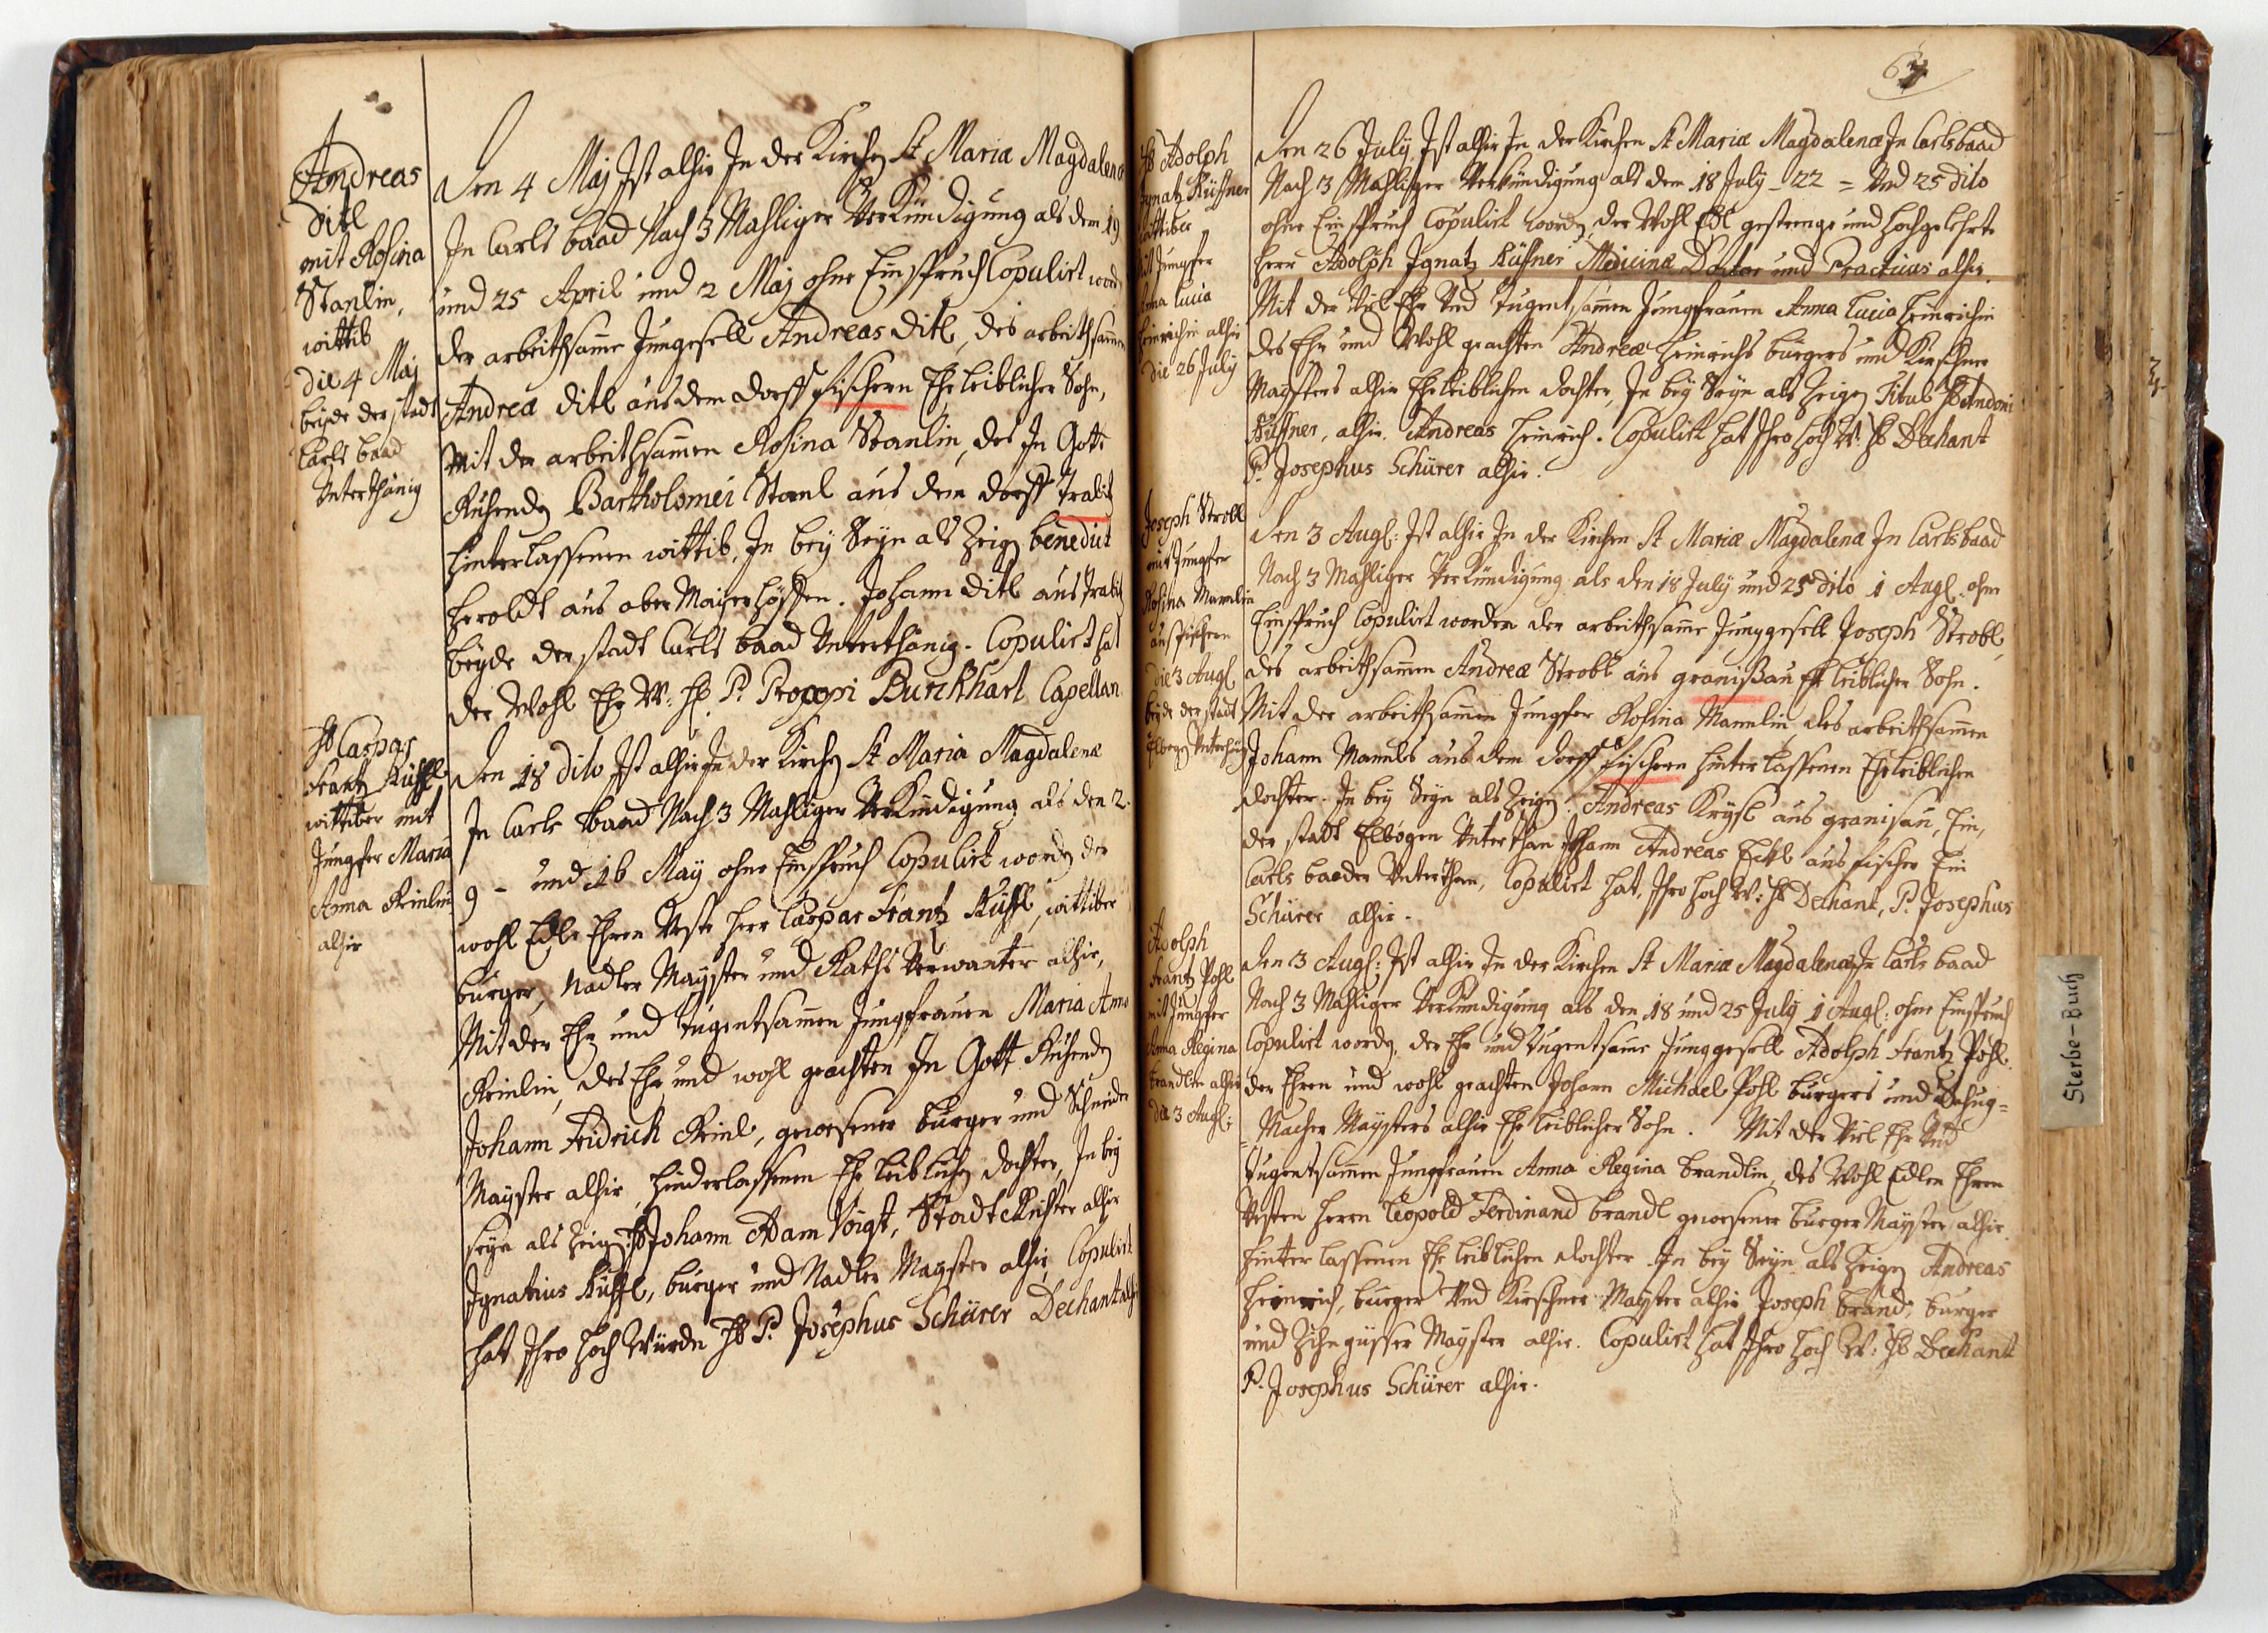 Andreas
Ditl
mit Rosina
Stanlin,
wittib
die 4 Maj
beyde der stadt
Carls baad
Unterthänig
Den 4 Maj Ist alhir In der Kirchen St Maria Magdalena
In Carls baad Nach 3 Mahliger Verkündigung als dem 19
und 25 April und 2 Maj ohne Einspruch Copulirt word
der arbeithsame Jungesell Andreas Ditl, des arbeithsamen
Andreæ Ditl aus dem dorff fischern Ehe leiblicher Sohn,
Mit der arbeithsamen Rosina Stanlin, des In Gott
Ruhenden Bartholomei Stanl aus dem dorff Trabitz
hinterlassenen wittib, In bey Seyn als Zeigen benedict
Heroldt aus ober Maierhöffen. Johann Ditl aus Trabitz
beyde der stadt Carls baad Unterthänig. Copulirt hat
der Wohl Ehr W: H P. Procopi Burckhart Capellan.
H Caspar
Frantz Küffl,
wittiber mit
Jungfer Maria
Anna Reinlin
alhir
Den 18 dito Ist alhir In der Kirchen St Maria Magdalenæ
In Carls baad Nach 3 Mahliger Verkündigung als den 2.
9 – und 16 May ohne Einspruch Copulirt worden der
wohl Edle Ehren Veste Herr Caspar Frantz Küffl, wittiber
burger, Nadler Mayster und Raths Verwanter alhir,
Mit der Ehr und tugentsamen Jungfrauen Maria Anna
Reinlin, des Ehr und wohl geachten In Gott Ruhenden
Johann Fridrich Reinl, gewesener burger und Schneider
Mayster alhir, hinderlassenen Ehe leiblichen dochter, In bey
seyn als Zeigen H Johann Adam Voigt, Stadt Richter alhir
Ignatius Küffl, burger und Nadler Mayster alhir Copulirt
hat Ihro Hoch Würden H P. Josephus Schürer Dechant alhir
64
H Adolph
Ignatz Küffner
wittiber
mit Jungfer
Anna Lucia
Heinrichin alhir
die 26 July
Den 26 July Ist alhir In der Kirchen St Mariæ Magdalenæ In Carlsbaad
Nach 3 Mahliger Verkündigung als dem 18 July – 22 = Und 25 dito
ohne Einspruch Copulirt worden, der Wohl Edl gestrenge und Hochgelehrte
Herr Adolph Ignatz Küffner Medicinæ Doctor und Practicus alhir.
Mit der Viel Ehr Und tugentsamen Jungfrauen Anna Lucia Heinrichin
des Ehr und Wohl geachten Andreæ Heinrichs burgers und Kirschner
Maysters alhir Ehe leiblichen dochter, In bey Seyn als Zeigen Titul H Andoni
Küffner, alhir. Andreas Heinrich. Copulirt hat Ihro Hoch W: H Dechant
P. Josephus Schürer alhir.
Joseph Strobl
mit Jungfer
Rosina Mannlin
aus fischern
die 3 Augl
beyde der stadt
Elbogen Unterthänig
Den 3 Augl: Ist alhir In der Kirchen St Mariæ Magdalenæ In Carlsbaad
Nach 3 Mahliger Verkündigung als den 18 July und 25 dito 1 Augl. ohne
Einspruch Copulirt worden der arbeithsame Junggesell Joseph Strobl,
des arbeithsamen Andreæ Strobl aus granißau Ehe leiblicher Sohn.
Mit der arbeithsamen Jungfer Rosina Mannlin, des arbeithsamen
Johann Mannls aus dem dorff fischern hinterlassenen Ehe leiblichen
dochter. In bey Seyn als Zeigen. Andreas Krysl aus granisau, Ein,
der stadt Elbogen Unterthan Johann Andreas Eckl aus fischer Ein
Carls baader Unterthan, Copulirt hat, Ihro Hoch W: H Dechant, P. Josephus
Schürer alhir.
Adolph
Frantz Pohl
mit Jungfer
Anna Regina
brandlin alhir
die 3 Augl:
Den 3 Augl: Ist alhir In der Kirchen St Mariæ Magdalenæ In Carls baad
Nach 3 Mahliger Verkündigung als den 18 und 25 July 1 Augl: ohne Einspruch
Copulirt worden, der Ehr und tugentsame Junggesell Adolph Frantz Pohl.
der Ehren und wohl geachten Johann Michael Pohl burgers und
Macher Maysters alhir Ehe leiblicher Sohn. Mit der Viel Ehr Und
tugentsamen Jungfrauen Anna Regina brandlin, des Wohl Edlen Ehren
Vesten Herrn Leopold Ferdinand brandl gewesener burger Mayster alhir.
hinter lassenen Ehe leiblichen dochter. In bey Seyn als Zeigen Andreas
Heinrich, burger Und Kirschner Mayster alhir Joseph brand, burger
und Zihn güsser Mayster alhir. Copulirt hat Ihro Hoch W: H Dechant
P. Josephus Schürer alhir.
Sterbe-Buch